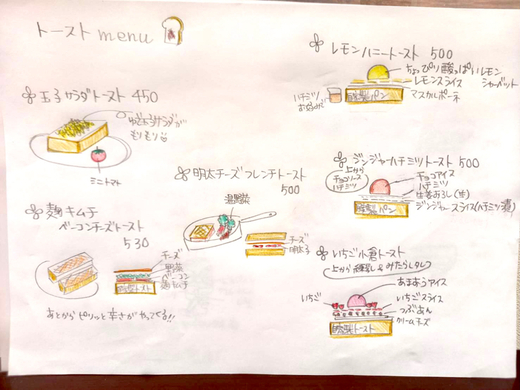 トースト menu
玉子サラダトースト 450
ゆでたまごサラダが
モリモリ
ミニトマト
麹キムチ
ベーコンチーズトースト
530
チーズ
野菜
ベーコン
麹キムチ
自家製トースト
あとからピリッと辛さがやってくる!!
明太チーズフレンチトースト
500
温野菜
チーズ
明太子
レモンハニートースト 500
ちょっぴり酸っぱいレモン
シャーベット
レモンスライス
マスカルポーネ
ハチミツ
お好みで
自家製パン
ジンジャーハチミツトースト 500
上から
チョコソース
ハチミツ
チョコアイス
ハチミツ
生姜おろし(生)
ジンジャースライス(ハチミツ漬)
自家製パン
いちご小倉トースト
上から練乳&みたらしタレ
あまおうアイス
いちご
いちごスライス
つぶあん
クリームチーズ
自家製トースト